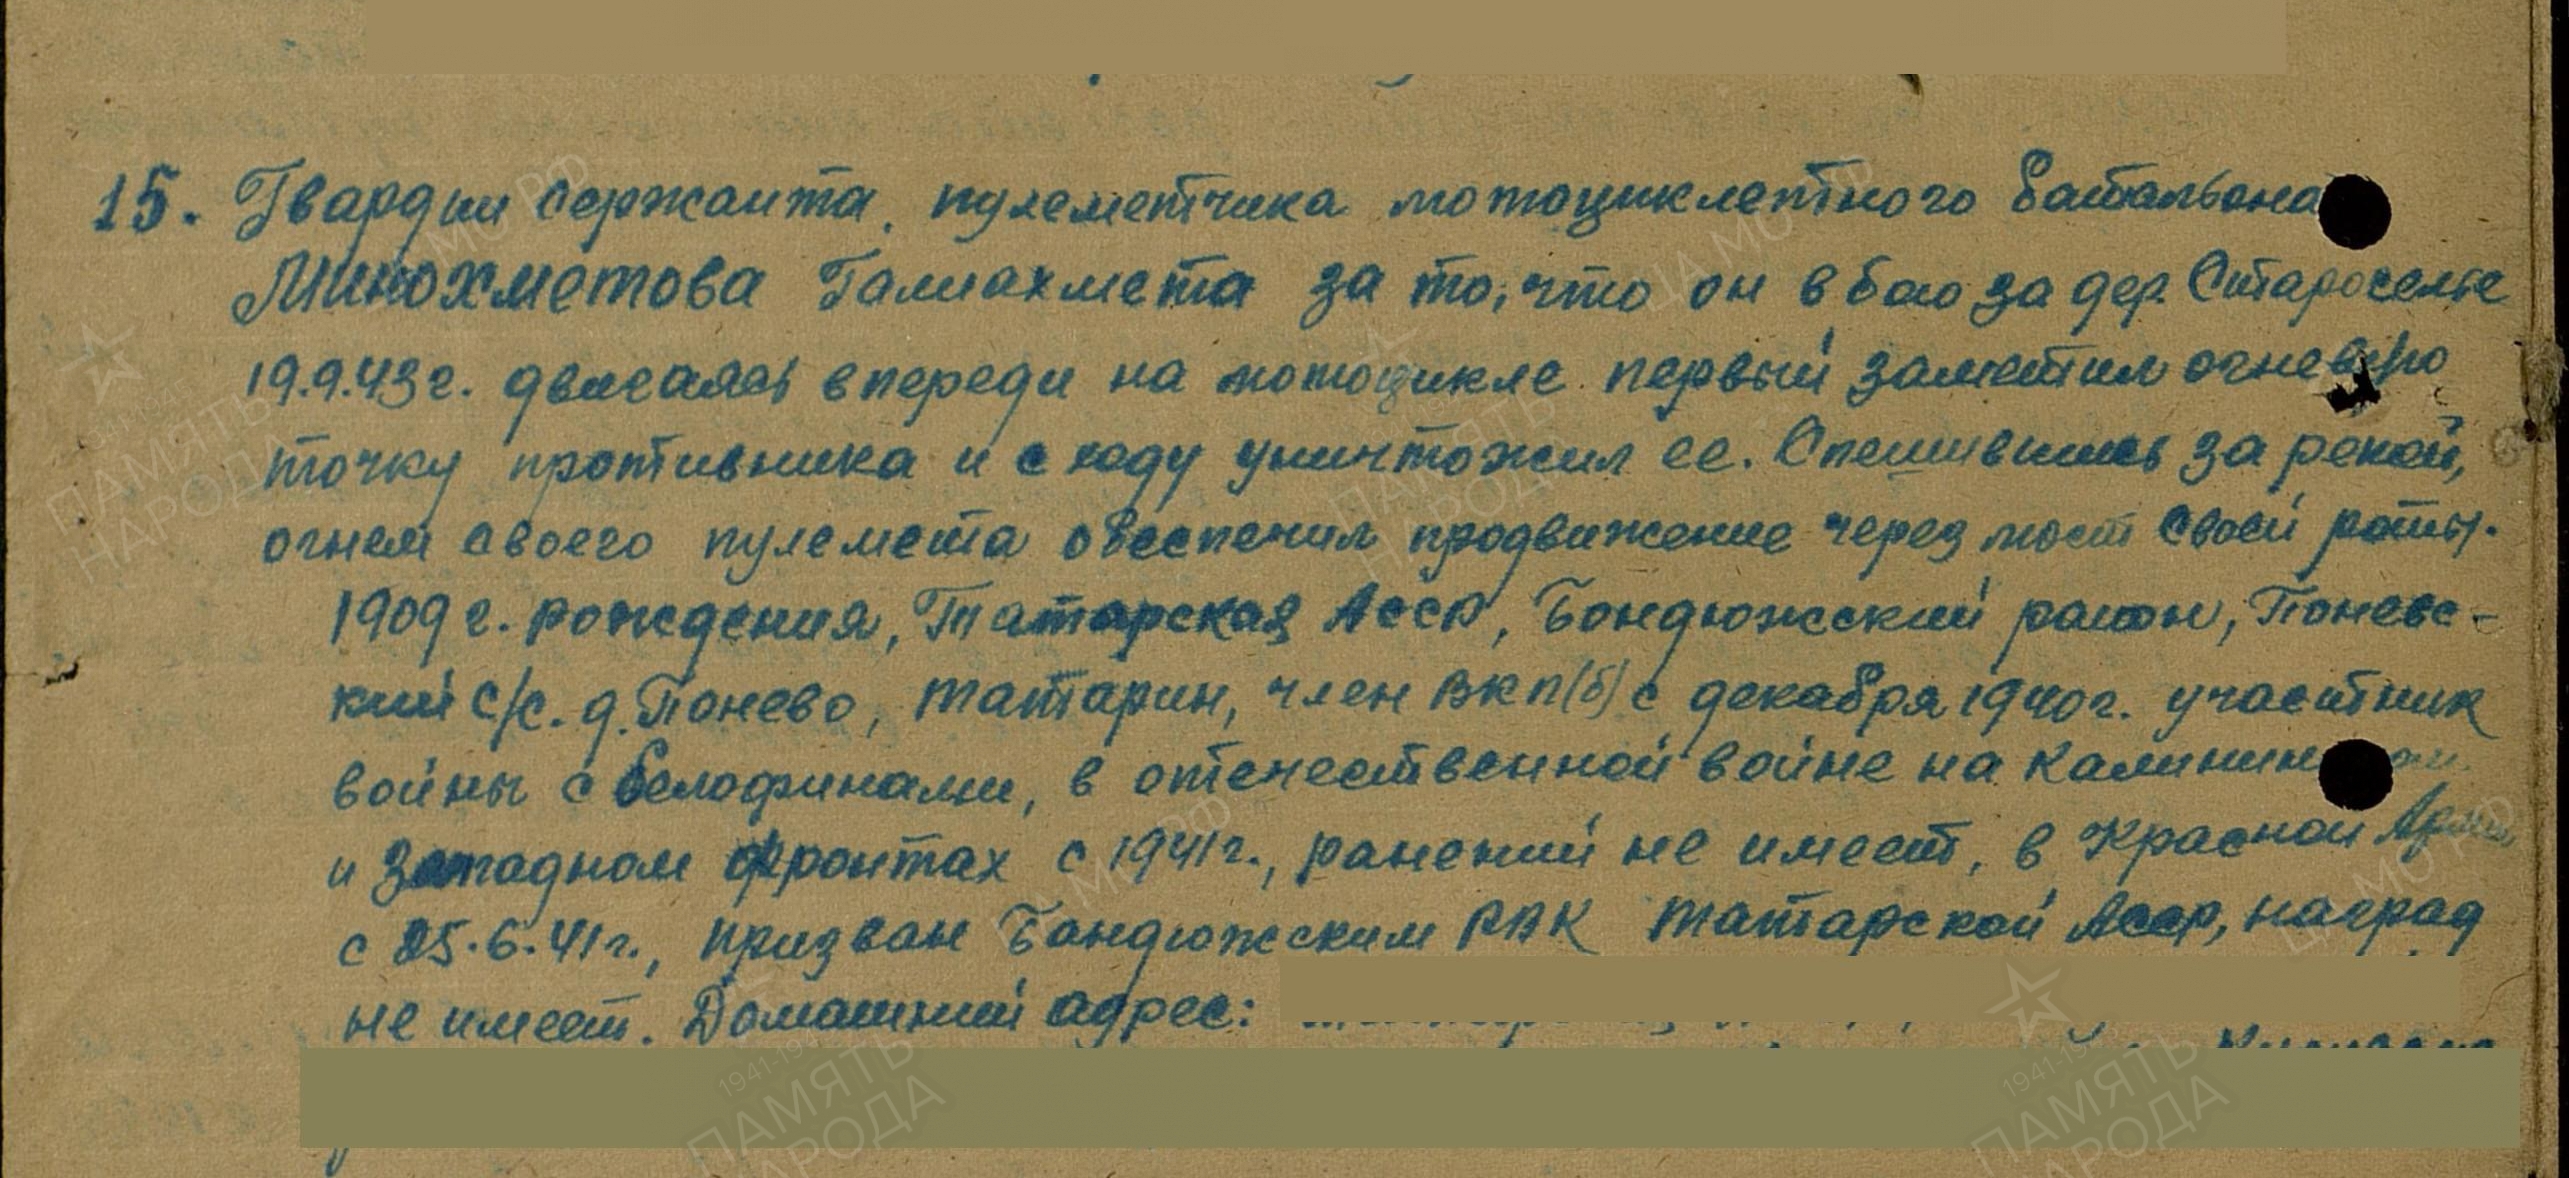 15. Гвардии сержанта. пулеметчика мотоциклетного батальона
Минохметова Галиахмета за то, что он в бою за дер. Староселье
19.9.43 г. двигаясь впереди на мотоцикле первый заметил огневую
точку противника и с ходу уничтожил ее. Спешившись за рекой,
огнем своего пулемета обеспечил продвижение через мост своей роты.
1909 г. рождения, Татарская АССР, Бондюжский район, Поневс-
кий с/с. д. Понево, татарин, член ВКП(б) с декабря 1940 г. участник
войны с белофинами, в отечественной войне на
и Западном фронтах с 1941 г., ранений не имеет, в Красной
с 25.6.41 г., призван Бондюжским РВК Татарской АССР, наград
не имеет. Домашний адрес:
ЦА МО РФ
1941-1945
ПАМЯТЬ
НАРОДА